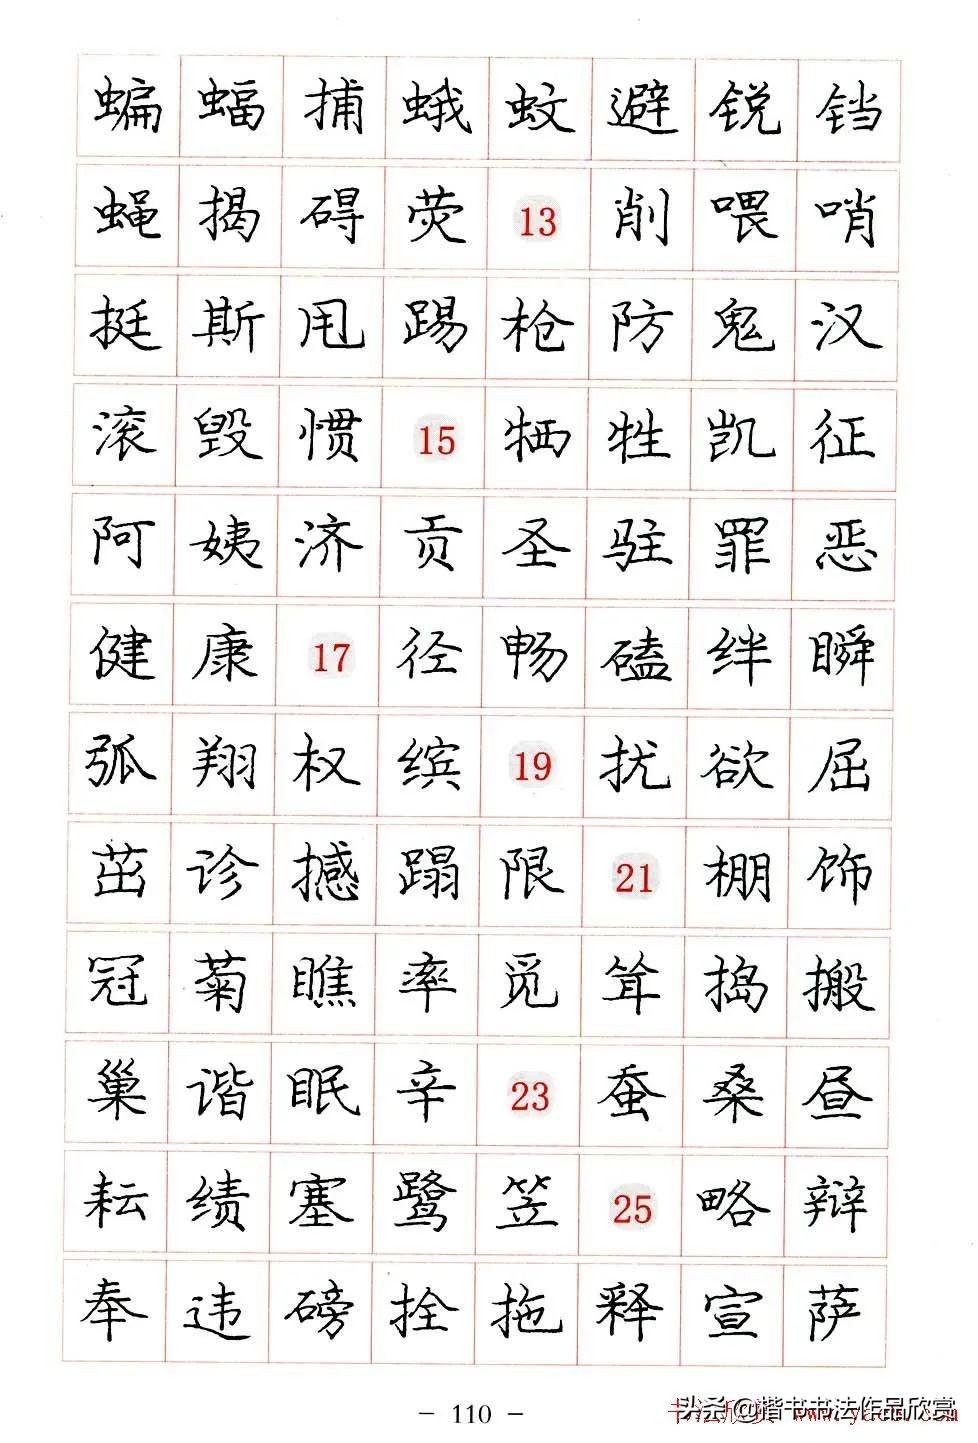 蝙 蝠 捕 蛾 蚊 避 锐 铛
蝇 揭 碍 荧 13 削 喂 哨
挺 斯 甩 踢 枪 防 鬼 汉
滚 毁 惯 15 牺 牲 凯 征
阿 姨 济 贡 圣 驻 罪 恶
健 康 17 径 畅 磕 绊 瞬
弧 翔 权 缤 19 扰 欲 屈
茁 诊 撼 蹋 限 21 棚 饰
冠 菊 瞧 率 觅 耸 捣 搬
巢 谐 眠 辛 23 蚕 桑 昼
耘 绩 塞 鹭 笠 25 略 辩
奉 违 磅 拴 拖 释 宣 萨
- 110 -
头条@楷书书法作品欣赏